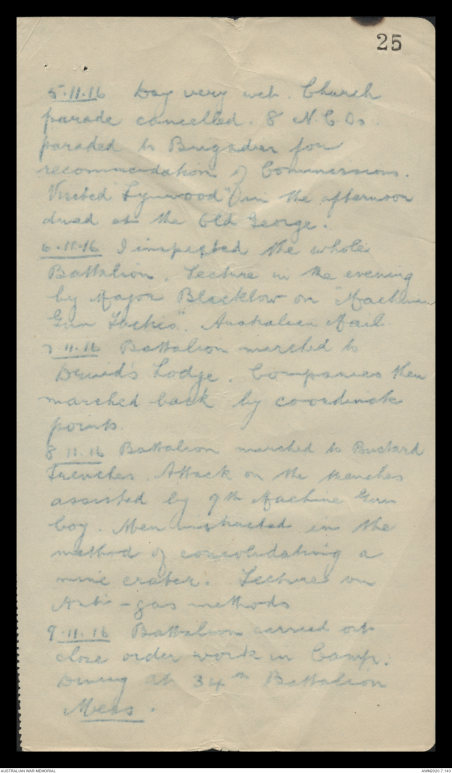 25
5.11.16 Day very wet. Church
parade cancelled. 8 N.C.Os.
paraded to Brigadier for
recommendation of Commissions.
Visited "Lynwood" in the afternoon
dined at the Old George.
6.11.16 I inspected the whole
Battalion. Lecture in the evening
by Major Blacklow on "Machine
Gun Tactics". Australian Mail
7.11.16 Battalion marched to
Druids Lodge. Companies then
marched back by co-ordinate
points.
8.11.16 Battalion marched to Bustard
Trenches. Attack on the trenches
assisted by 9th Machine Gun
Coy. Men instructed in the
method of consolidating a
mine crater. Lectures on
Anti-gas methods
9.11.16 Battalion carried out
close order work in Camp.
Dining at 34th Battalion
Mess.
AUSTRALIAN WAR MEMORIAL